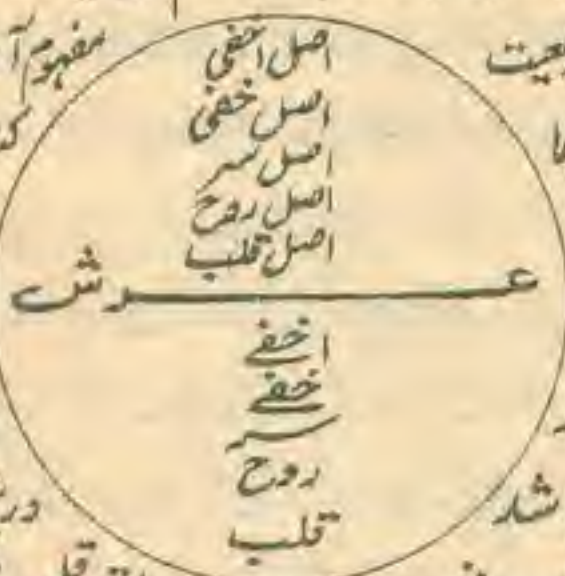 مفہوم
اصل اخفی
اصل خفی
اصل سر
اصل روح
اصل قلب
عرش
اخفے
خفے
سر
روح
قلب